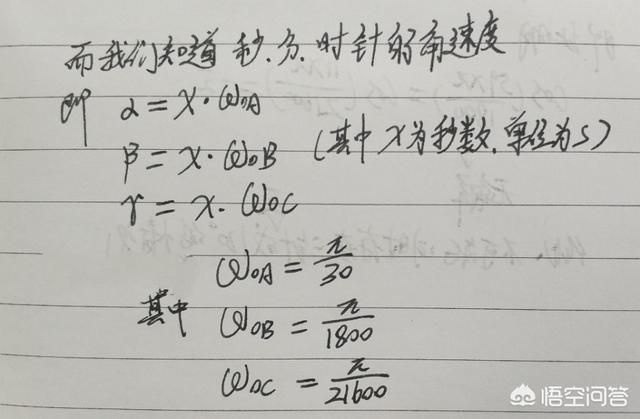 而我们知道 秒.分.时针的角速度
即 α = x·ω₀A
β = x·ω₀B (其中 x 为秒数,单位为 s)
γ = x·ω₀C
ω₀A = π/30
其中 ω₀B = π/1800
ω₀C = π/21600
悟空问答